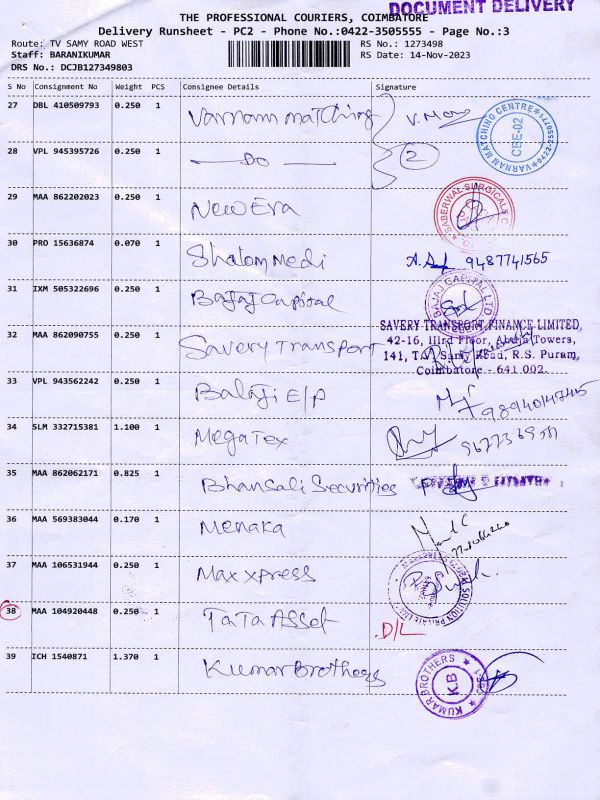 DOCUMENT DELIVERY
THE PROFESSIONAL COURIERS, COIMBATORE
Delivery Runsheet - PC2 - Phone No.:0422-3505555 - Page No.:3
Route: TV SAMY ROAD WEST
RS No.: 1273498
Staff: BARANIKUMAR
RS Date: 14-Nov-2023
DRS No.: DCJB127349803
S No Consignment No Weight PCS Consignee Details Signature
27 DBL 410509793 0.250 1 Varnam matching V. Mony
VARNAM MATCHING CENTRE
CBE-02
28 VPL 945395726 0.250 1 DO 2
29 MAA 862202023 0.250 1 New Era
SABERWAL SURGICALS
30 PRO 15636874 0.070 1 Shalom Medi 9487741565
31 IXM 505322696 0.250 1 Bajaj Capital
BAJAJ CAPITAL LTD
32 MAA 862090755 0.250 1 Savery Transport
SAVERY TRANSPORT FINANCE LIMITED,
42-16, IIIrd Floor, Ahuja Towers,
141, T.V. Samy Road, R.S. Puram,
Coimbatore - 641 002.
33 VPL 943562242 0.250 1 Balaji E/P
34 SLM 332715381 1.100 1 Megatex
35 MAA 862062171 0.825 1 Bhansali Securities
36 MAA 569383044 0.170 1 Menaka
37 MAA 106531944 0.250 1 Max xpress
38 MAA 104920448 0.250 1 TaTa Asset D/L
39 ICH 1540871 1.370 1 Kumar Brothers
KUMAR BROTHERS
K.B